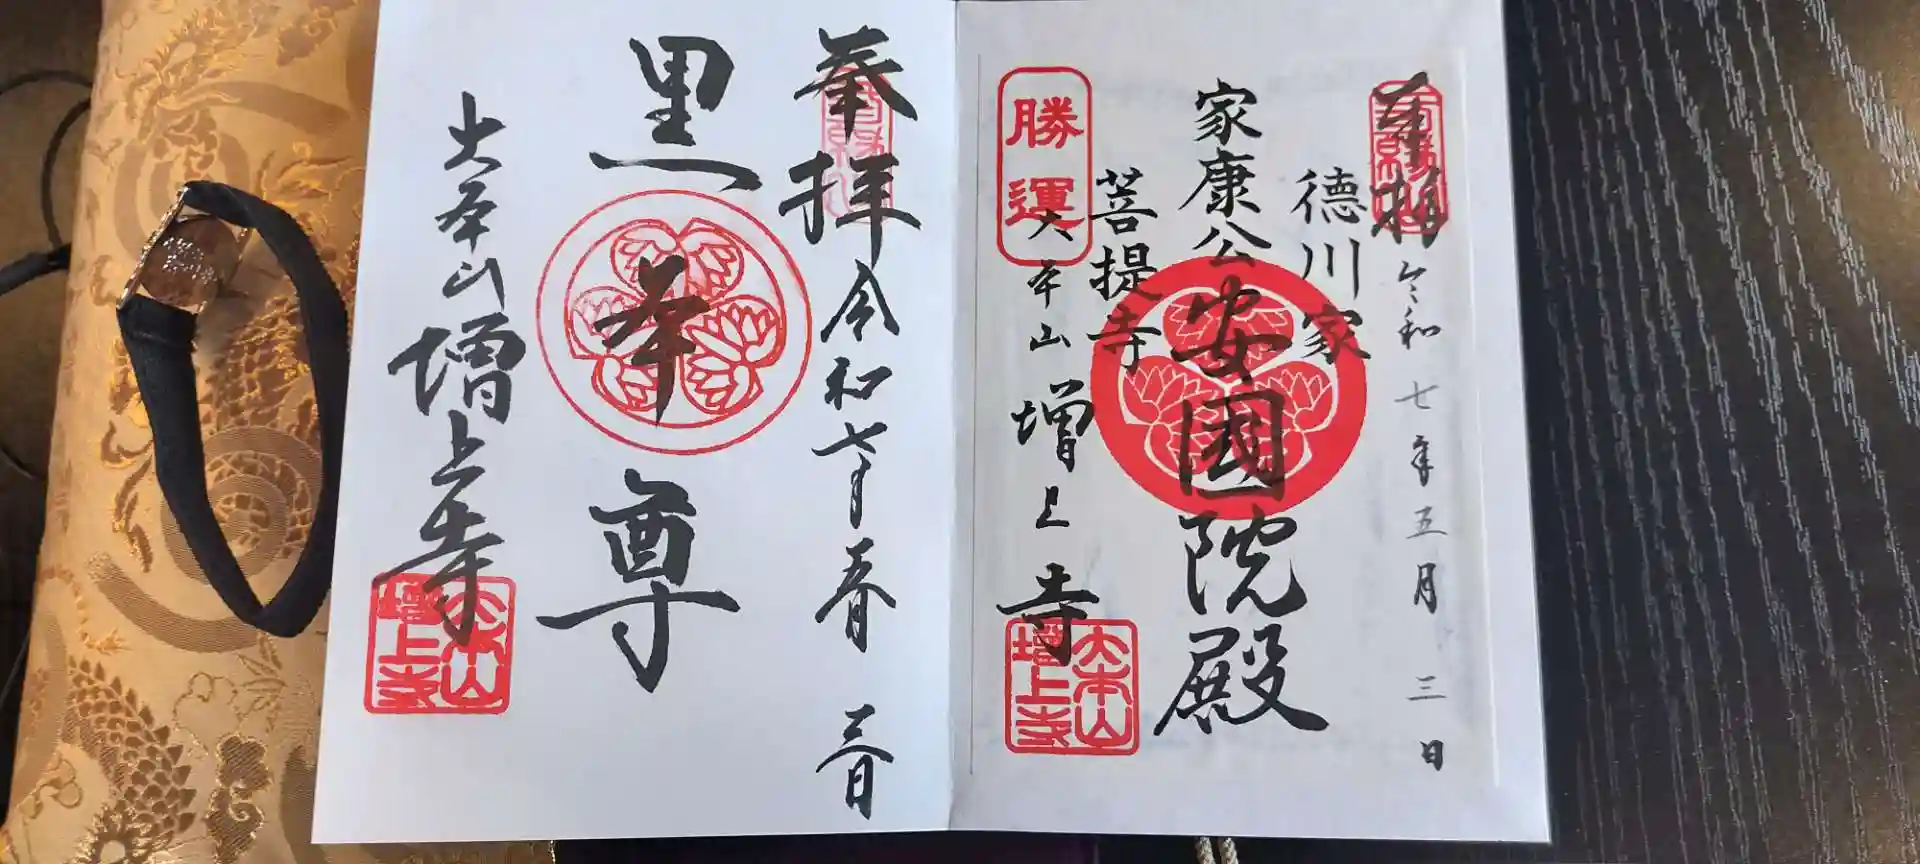 奉拝
令和七年五月三日
徳川家
家康公
安國院殿
菩提寺
勝運
大本山増上寺
大本山
増上寺
奉拝
令和七年五月三日
黒本尊
大本山増上寺
大本山
増上寺